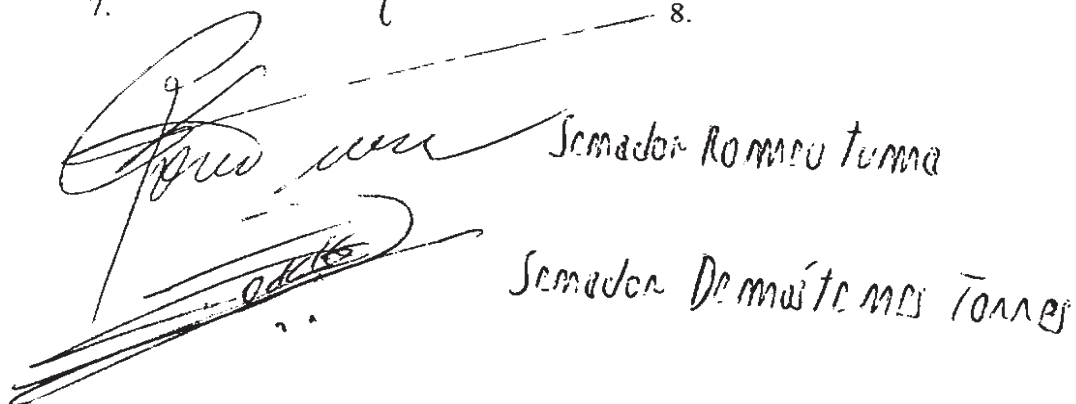 7. 8.
Senador Romeu Tuma
Senador Demóstenes Torres